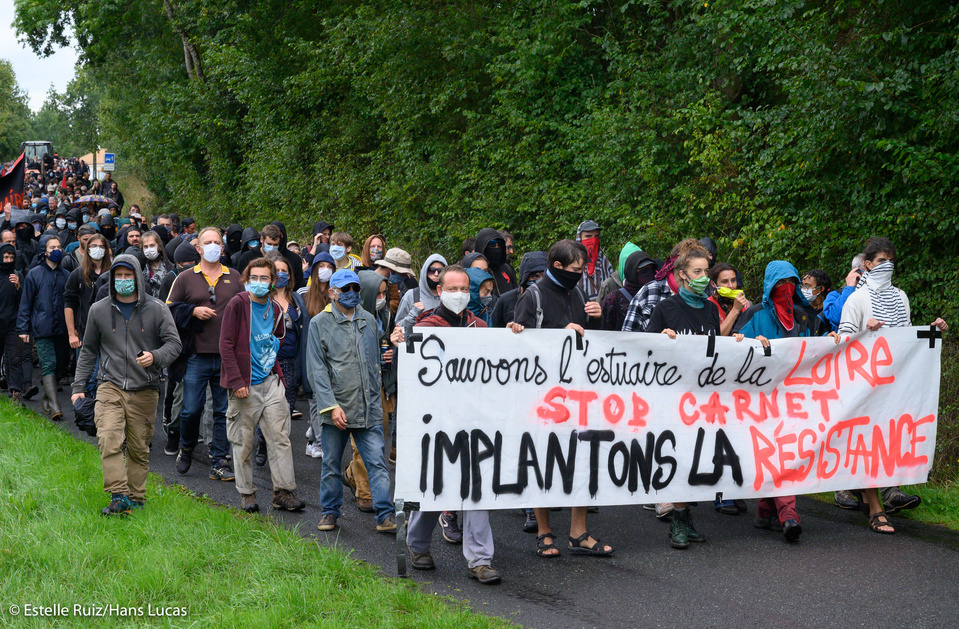 Sauvons l'estuaire de la LOIRE
STOP CARNET
iMPLANTONS LA RÉSISTANCE
© Estelle Ruiz/Hans Lucas